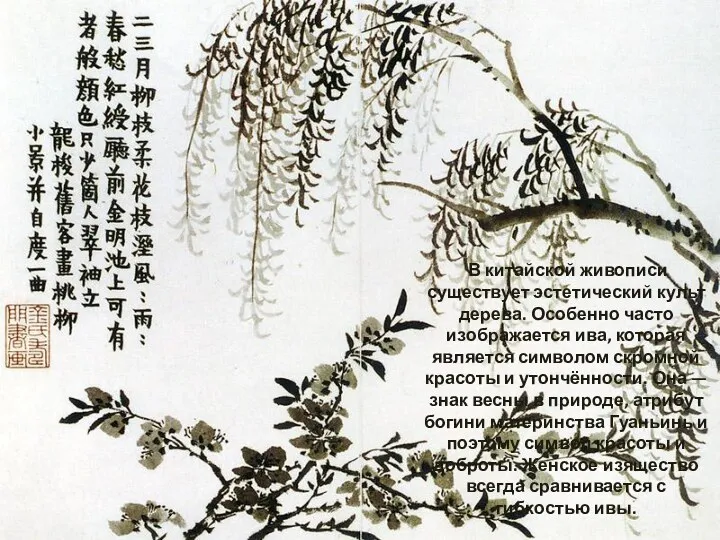 二三月柳枝柔花枝溼風〻雨〻
春愁紅綬廳前金明池上可有
者般顏色只少箇人翠袖立
龍梭舊客畫桃柳
小景并自度一曲
В китайской живописи
существует эстетический культ
дерева. Особенно часто
изображается ива, которая
является символом скромной
красоты и утончённости. Она —
знак весны в природе, атрибут
богини материнства Гуаньинь и
поэтому символ красоты и
доброты. Женское изящество
всегда сравнивается с
гибкостью ивы.